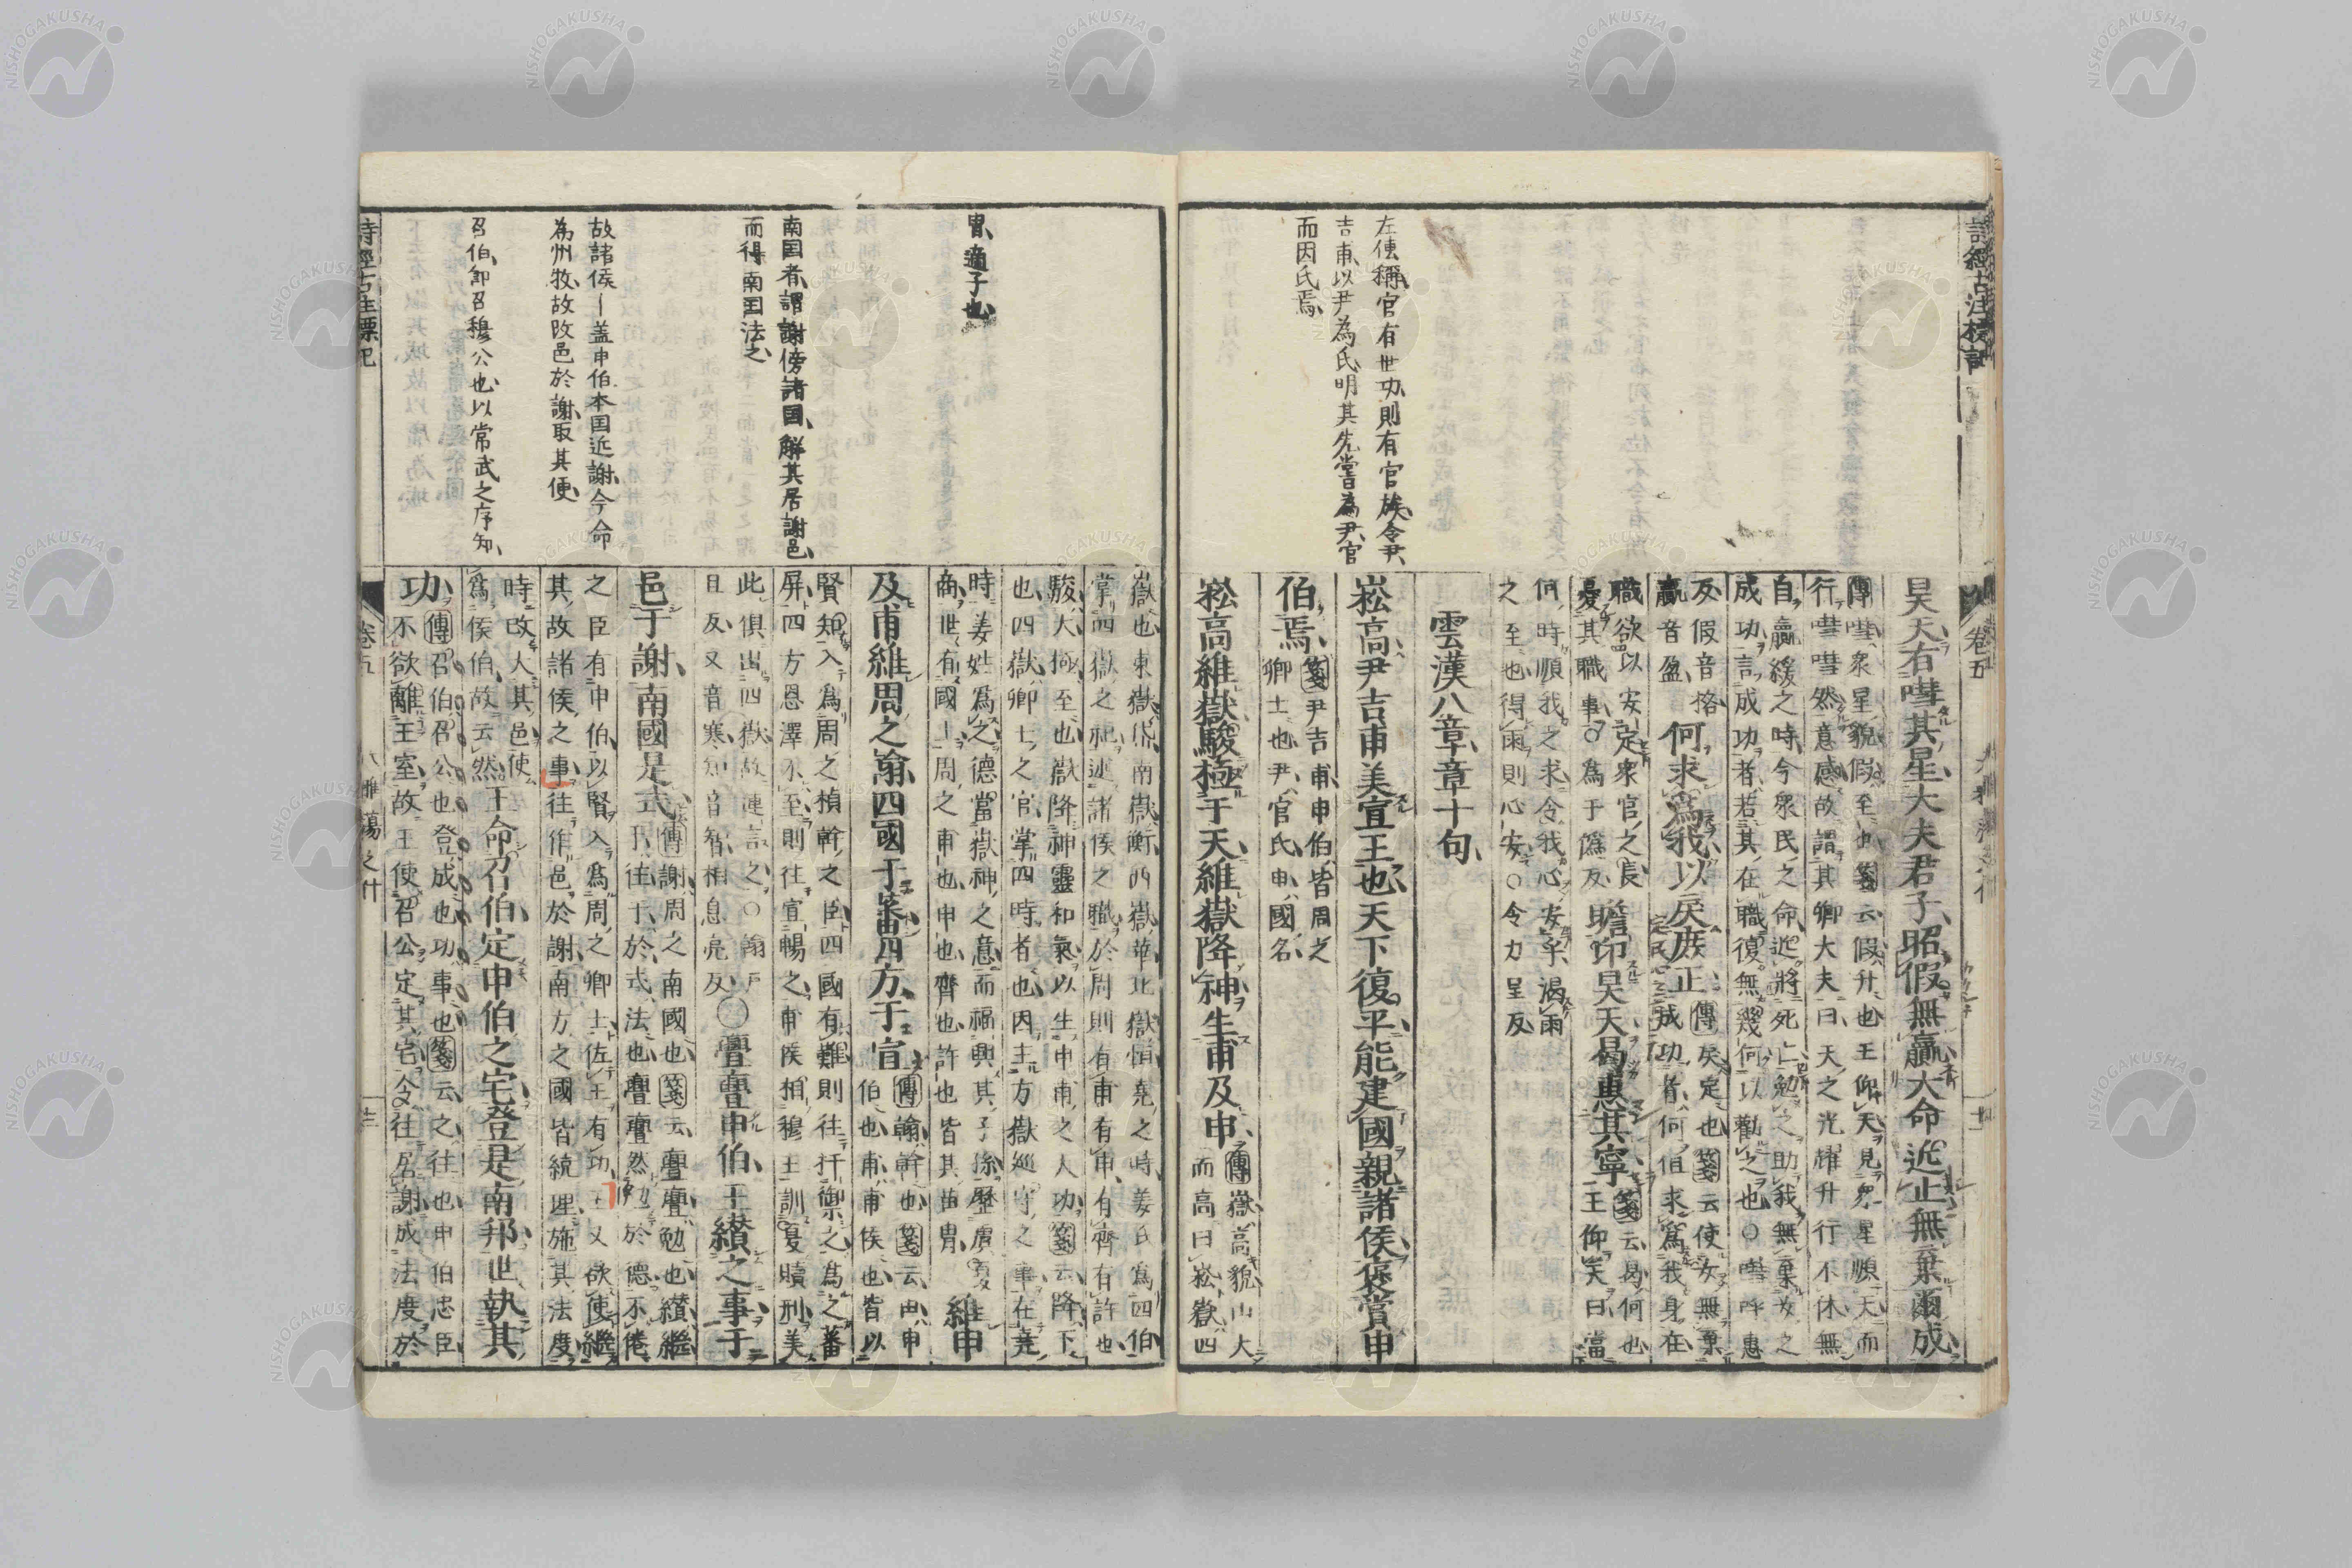 左傳稱官有世功則有官族令尹
吉甫以尹為氏明其先嘗為尹官
而因氏焉
昊天有嘒其星大夫君子昭假無贏大命近止無棄爾成
傳嘒衆星貌假至也箋云假升也王仰天見衆星順天而
行嘒嘒然意感故謂其卿大夫曰天之光耀升行不休無
自贏緩之時今衆民之命近將死亡勉之助我無棄女之
成功言成功者若其在職復無幾何以勸之也○嘒呼惠
反假音格
贏音盈
何求爲我以戾庶正
傳戾定也箋云使女無棄
成功者何但求爲我身在
職欲以安定衆官之長
憂其職事○爲于僞反
瞻卬昊天曷惠其寧
箋云曷何也
王仰天曰當
何時順我之求令我心安乎渴雨
之至也得雨則心安○令力呈反
雲漢八章章十句
崧高尹吉甫美宣王也天下復平能建國親諸侯褒賞申
伯焉
箋尹吉甫申伯皆周之
卿士也尹官氏申國名
崧高維嶽駿極于天維嶽降神生甫及申
傳嶽高貌山大
而高曰崧嶽四
詩經古注標記
卷五
胄適子也
南国者謂謝傍諸国解其居謝邑
而得南国法之
故諸侯—盖申伯本国近謝今命
為州牧故改邑於謝取其便
召伯卽召穆公也以常武之序知
嶽也東嶽岱南嶽衡西嶽華北嶽恒堯之時姜氏爲四伯
掌四嶽之祀述諸侯之職於周則有甫有申有齊有許也
駿大極至也嶽降神靈和氣以生申甫之大功箋云降下
也四嶽卿士之官掌四時者也因主方嶽巡守之事在堯
時姜姓爲之德當嶽神之意而福興其子孫歷虞夏
商世有國土周之甫也申也齊也許也皆其苗胄
維申
及甫維周之翰四國于蕃四方于宣
傳翰幹也箋云申申
伯也甫甫侯也皆以
賢知入爲周之楨幹之臣四國有難則往扞禦之為之蕃
屏四方恩澤不至則往宣暢之甫侯相穆王訓夏贖刑美
此俱出四嶽故連言之○翰戸
旦反又音寒知音智相息亮反
○亹亹申伯王纘之事于
邑于謝南國是式
傳謝周之南國也箋云亹亹勉也纘繼
于往于於式法也亹亹然勉於德不倦
之臣有申伯以賢入爲周之卿士佐王有功王又欲使繼
其故諸侯之事往作邑於謝南方之國皆統理施其法度
時改大其邑使
爲侯伯故云然
王命召伯定申伯之宅登是南邦世執其
功
傳召伯召公也登成也功事也箋云之往也申伯忠臣
不欲離王室故王使召公定其宅令往居謝成法度於